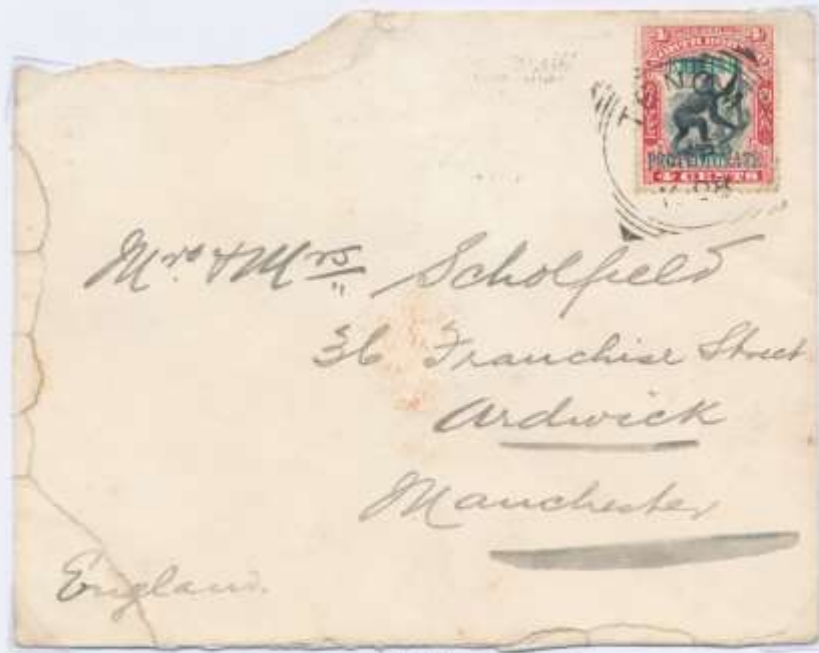 4 4
NORTH BORNEO
BRITISH
PROTECTORATE
4 CENTS
TENOM
Mr. & Mrs Scholfield
36 Franchise Street
Ardwick
Manchester
England.